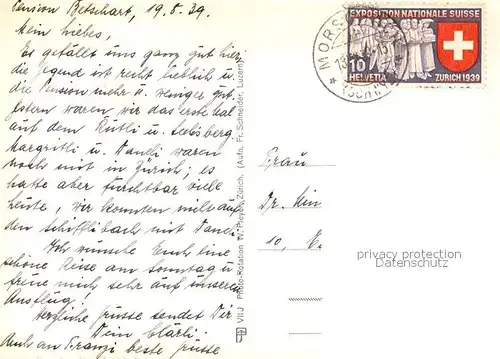 Pension Betschart, 19.8.39.
Mein liebes,
Es gefällt uns ganz gut hier
die Jugend ist recht lieblich u.
die Pension mehr u. weniger gut.
Gestern waren wir das erste mal
auf dem Rütli u. Seelisberg.
Margritli u. waren
noch mit in Zürich; es
hatte aber furchtbar viele
Leute, wir konnten nicht auf
den Schifflibach mit
Ich wünsche Euch eine
schöne Reise am Sonntag u.
freue mich sehr auf unseren
Ausflug!
Herzliche Grüsse sendet Dir
Dein Clärli.
Auch an Franzi beste Grüsse
VIIJ Photo-Rotation Meyer, Zürich. (Aufn. Fr. Schneider, Luzern)
MORSCH
(SCHWYZ)
EXPOSITION NATIONALE SUISSE
10
HELVETIA
ZURICH 1939
Frau
Dr.
10,
privacy protection
Datenschutz